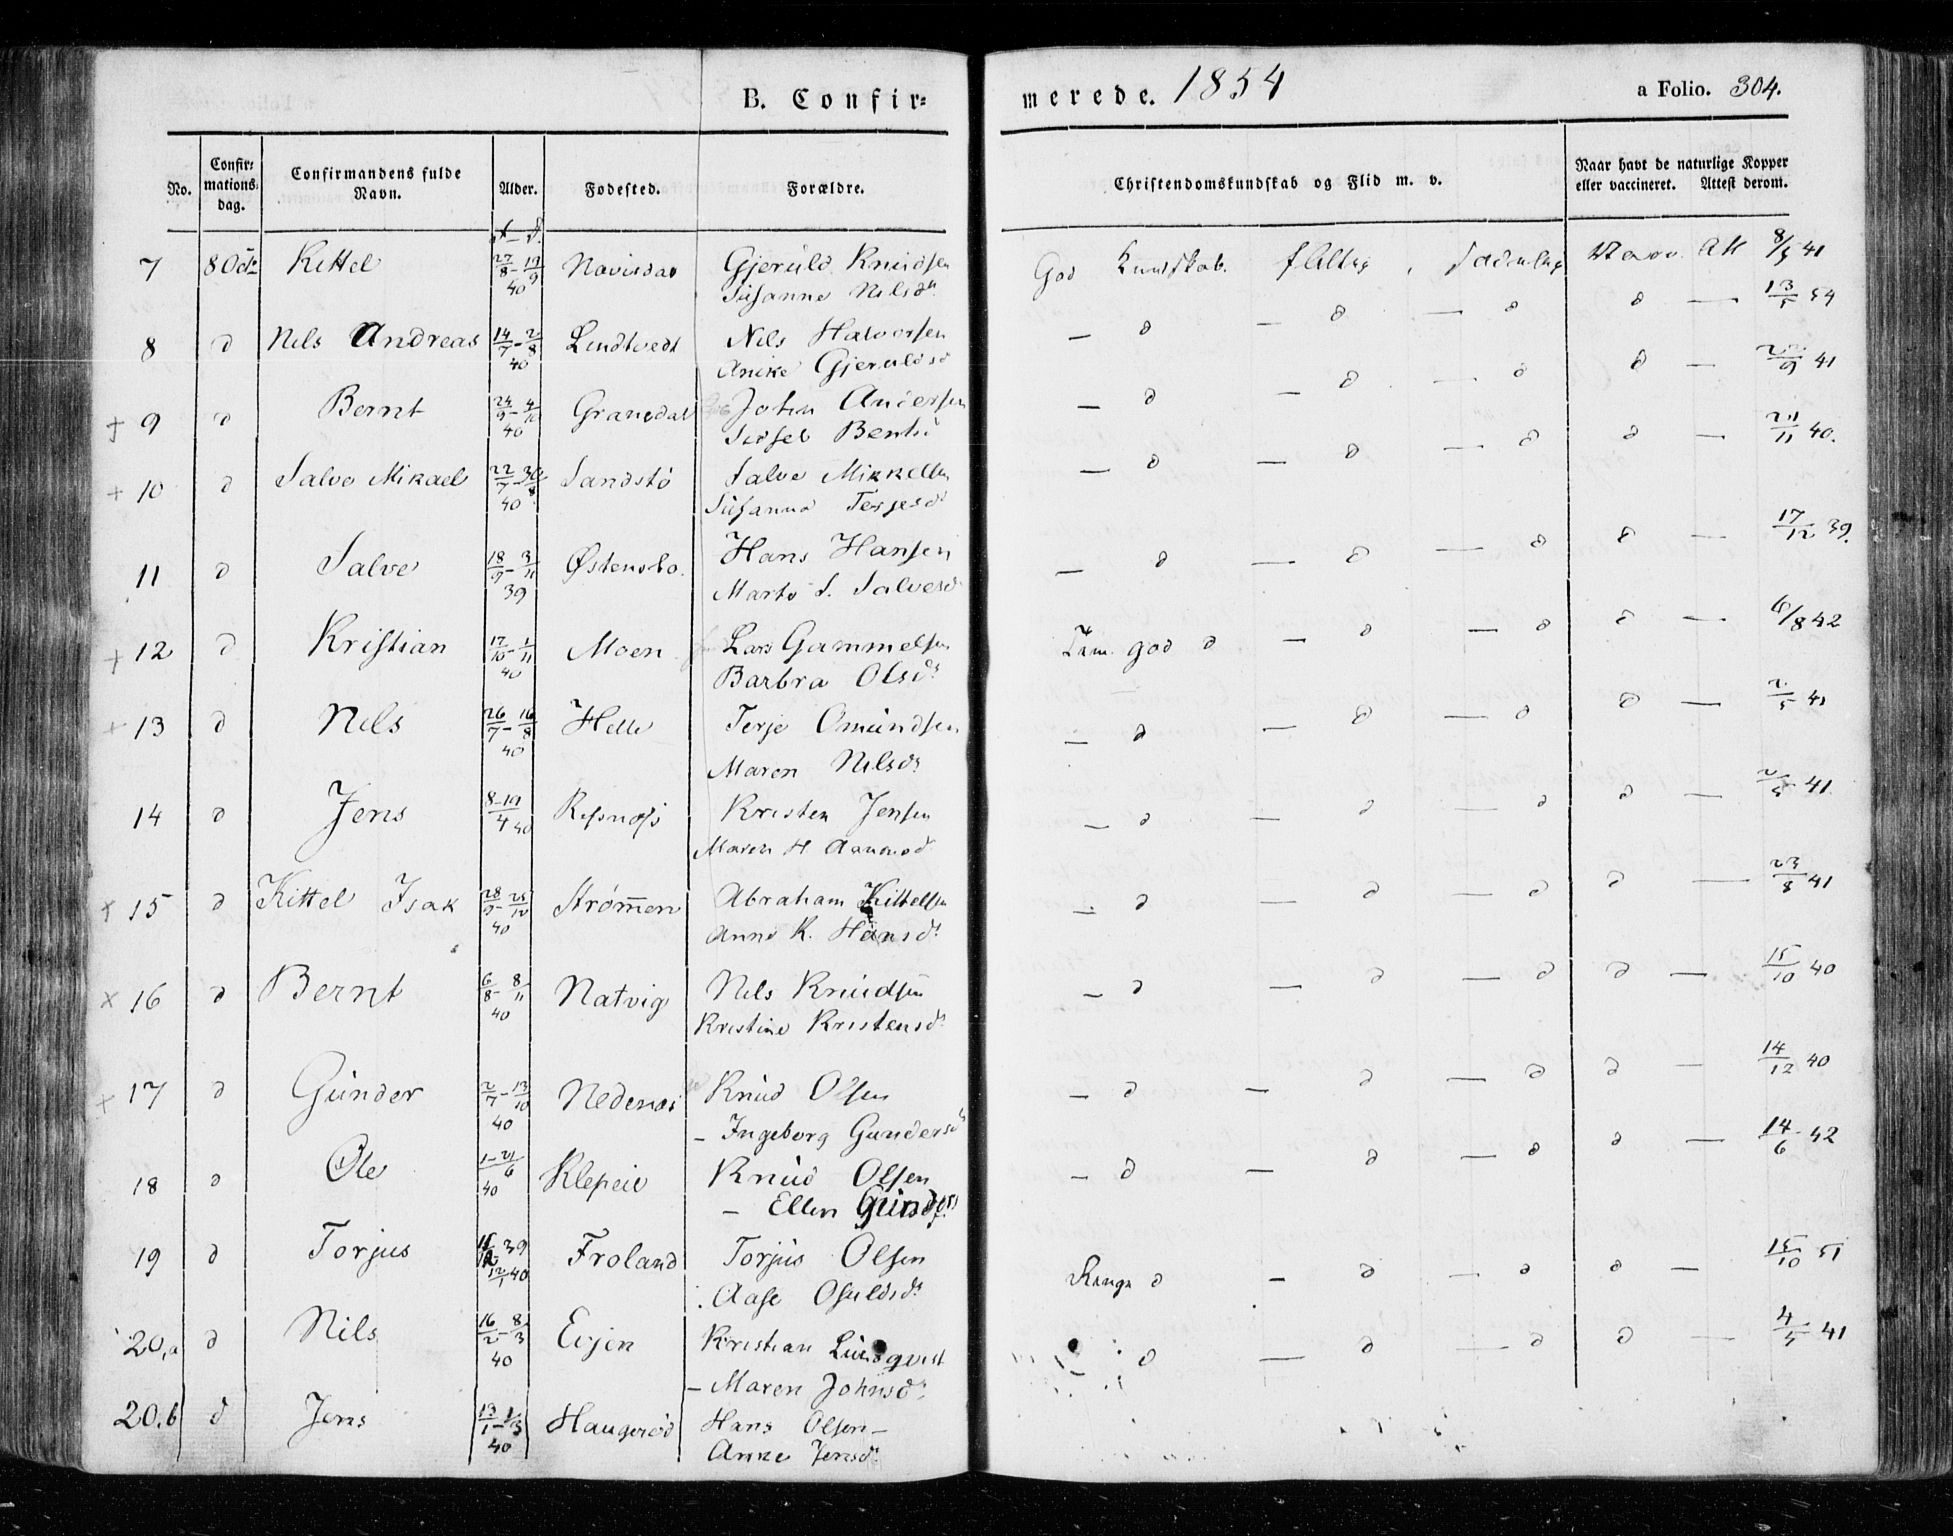 B. Confir= merede. 1854 a Folio. 304.
No. Confir= mations= dag. Confirmandens fulde Navn. Alder. Fødested. Forældre. Christendomskundskab og Flid m. v. Naar havt de naturlige Kopper eller vaccineret. Attest derom.
7 8 Oct Kittel 27/8 - 13/9 40 Gjeruld Knudsen God Kundskab. flittig, sædelig Vacc. Att 8/5 41
Susanne Nilsdr
8 d Nils Andreas 14/7 - 2/8 40 Lindtvedt Nils Halvorsen — d — d — d d — 13/5 54
Anike Gjeruldsd
9 d Bernt 24/9 - 4/10 40 Gransdal John Andersen — d — d — d d — 22/9 41
Sidsel
10 d Salve Mikael 22/7 - 30/8 40 Sandstø Salve Mikkelsen — d — d — d d — 21/11 40.
Susanne Terjesd
11 d Salve 18/9 - 3/11 39 Østensbo. Hans Hansen — d — d — d d — 17/12 39.
Marte S. Salvesd
12 d Kristian 17/10 - 1/11 40 Moen Lars Gammelsen Tem. god d — d — d d — 6/8 42
Barbra Olsdr
13 d Nils 26/7 - 16/8 40 Helle Terje Omundsen — d — d — d d — 2/5 41
Maren Nilsdr
14 d Jens 8-19/4 40 Kristen Jensen — d — d — d d — 2/5 41
Maren H.
15 d Kittel Isak 28/9 - 25/10 40 Strømmen Abraham Kittelsen — d — d — d d — 23/8 41
Anne K. Hansdr
16 d Bernt 6/8 - 8/11 40 Natvig Nils Knudsen — d — d — d d — 15/10 40
Kristine Kristensdr
17 d Gunder 2/7 - 13/10 40 Nedenes Knud Olsen — d — d — d d — 14/12 40
— Ingeborg Gundersd
18 d Ole 1-21/6 40 Knud Olsen — d — d — d d — 14/6 42
— Ellen
19 d Torjus 39 12/1 40 Froland Torjus Olsen Ringe d — d — d d — 15/10 51
Aase Osuldsdr
20,a d Nils 16/2 - 8/3 40 Evjen Kristian Lindqvist d — d — d d — 4/5 41
— Maren Johnsdr
20.b d Jens 13/1 - 1/3 40 Haugerød Hans Olsen —
Anne Jensdr